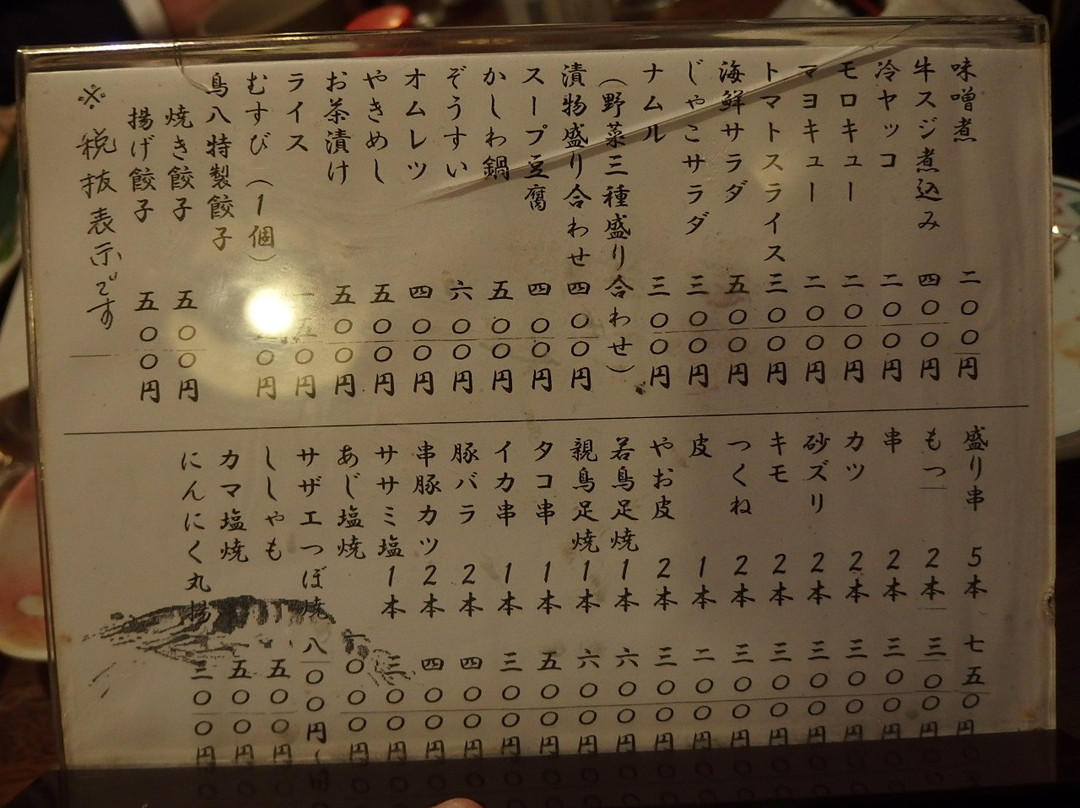 味噌煮 二〇〇円
牛スジ煮込み 四〇〇円
冷ヤッコ 二〇〇円
モロキュー 二〇〇円
マヨキュー 二〇〇円
トマトスライス 三〇〇円
海鮮サラダ 五〇〇円
じゃこサラダ 三〇〇円
ナムル 三〇〇円
(野菜三種盛り合わせ)
漬物盛り合わせ 四〇〇円
スープ豆腐 四〇〇円
かしわ鍋 五〇〇円
ぞうすい 六〇〇円
オムレツ 四〇〇円
やきめし 五〇〇円
お茶漬け 五〇〇円
ライス 一五〇円
むすび(1個)
鳥八特製餃子
焼き餃子 五〇〇円
揚げ餃子 五〇〇円
※税抜表示です
盛り串 5本 七五〇円
もつ 2本 三〇〇円
串 2本 三〇〇円
カツ 2本 三〇〇円
砂ズリ 2本 三〇〇円
キモ 2本 三〇〇円
つくね 2本 三〇〇円
皮 1本 二〇〇円
やお皮 2本 三〇〇円
若鳥足焼 1本 六〇〇円
親鳥足焼 1本 六〇〇円
タコ串 1本 五〇〇円
イカ串 1本 三〇〇円
豚バラ 2本 四〇〇円
串豚カツ 2本 四〇〇円
ササミ塩 1本 三〇〇円
あじ塩焼 〇〇円
サザエつぼ焼 八〇〇円
ししゃも 五〇〇円
カマ塩焼 五〇〇円
にんにく丸揚 三〇〇円